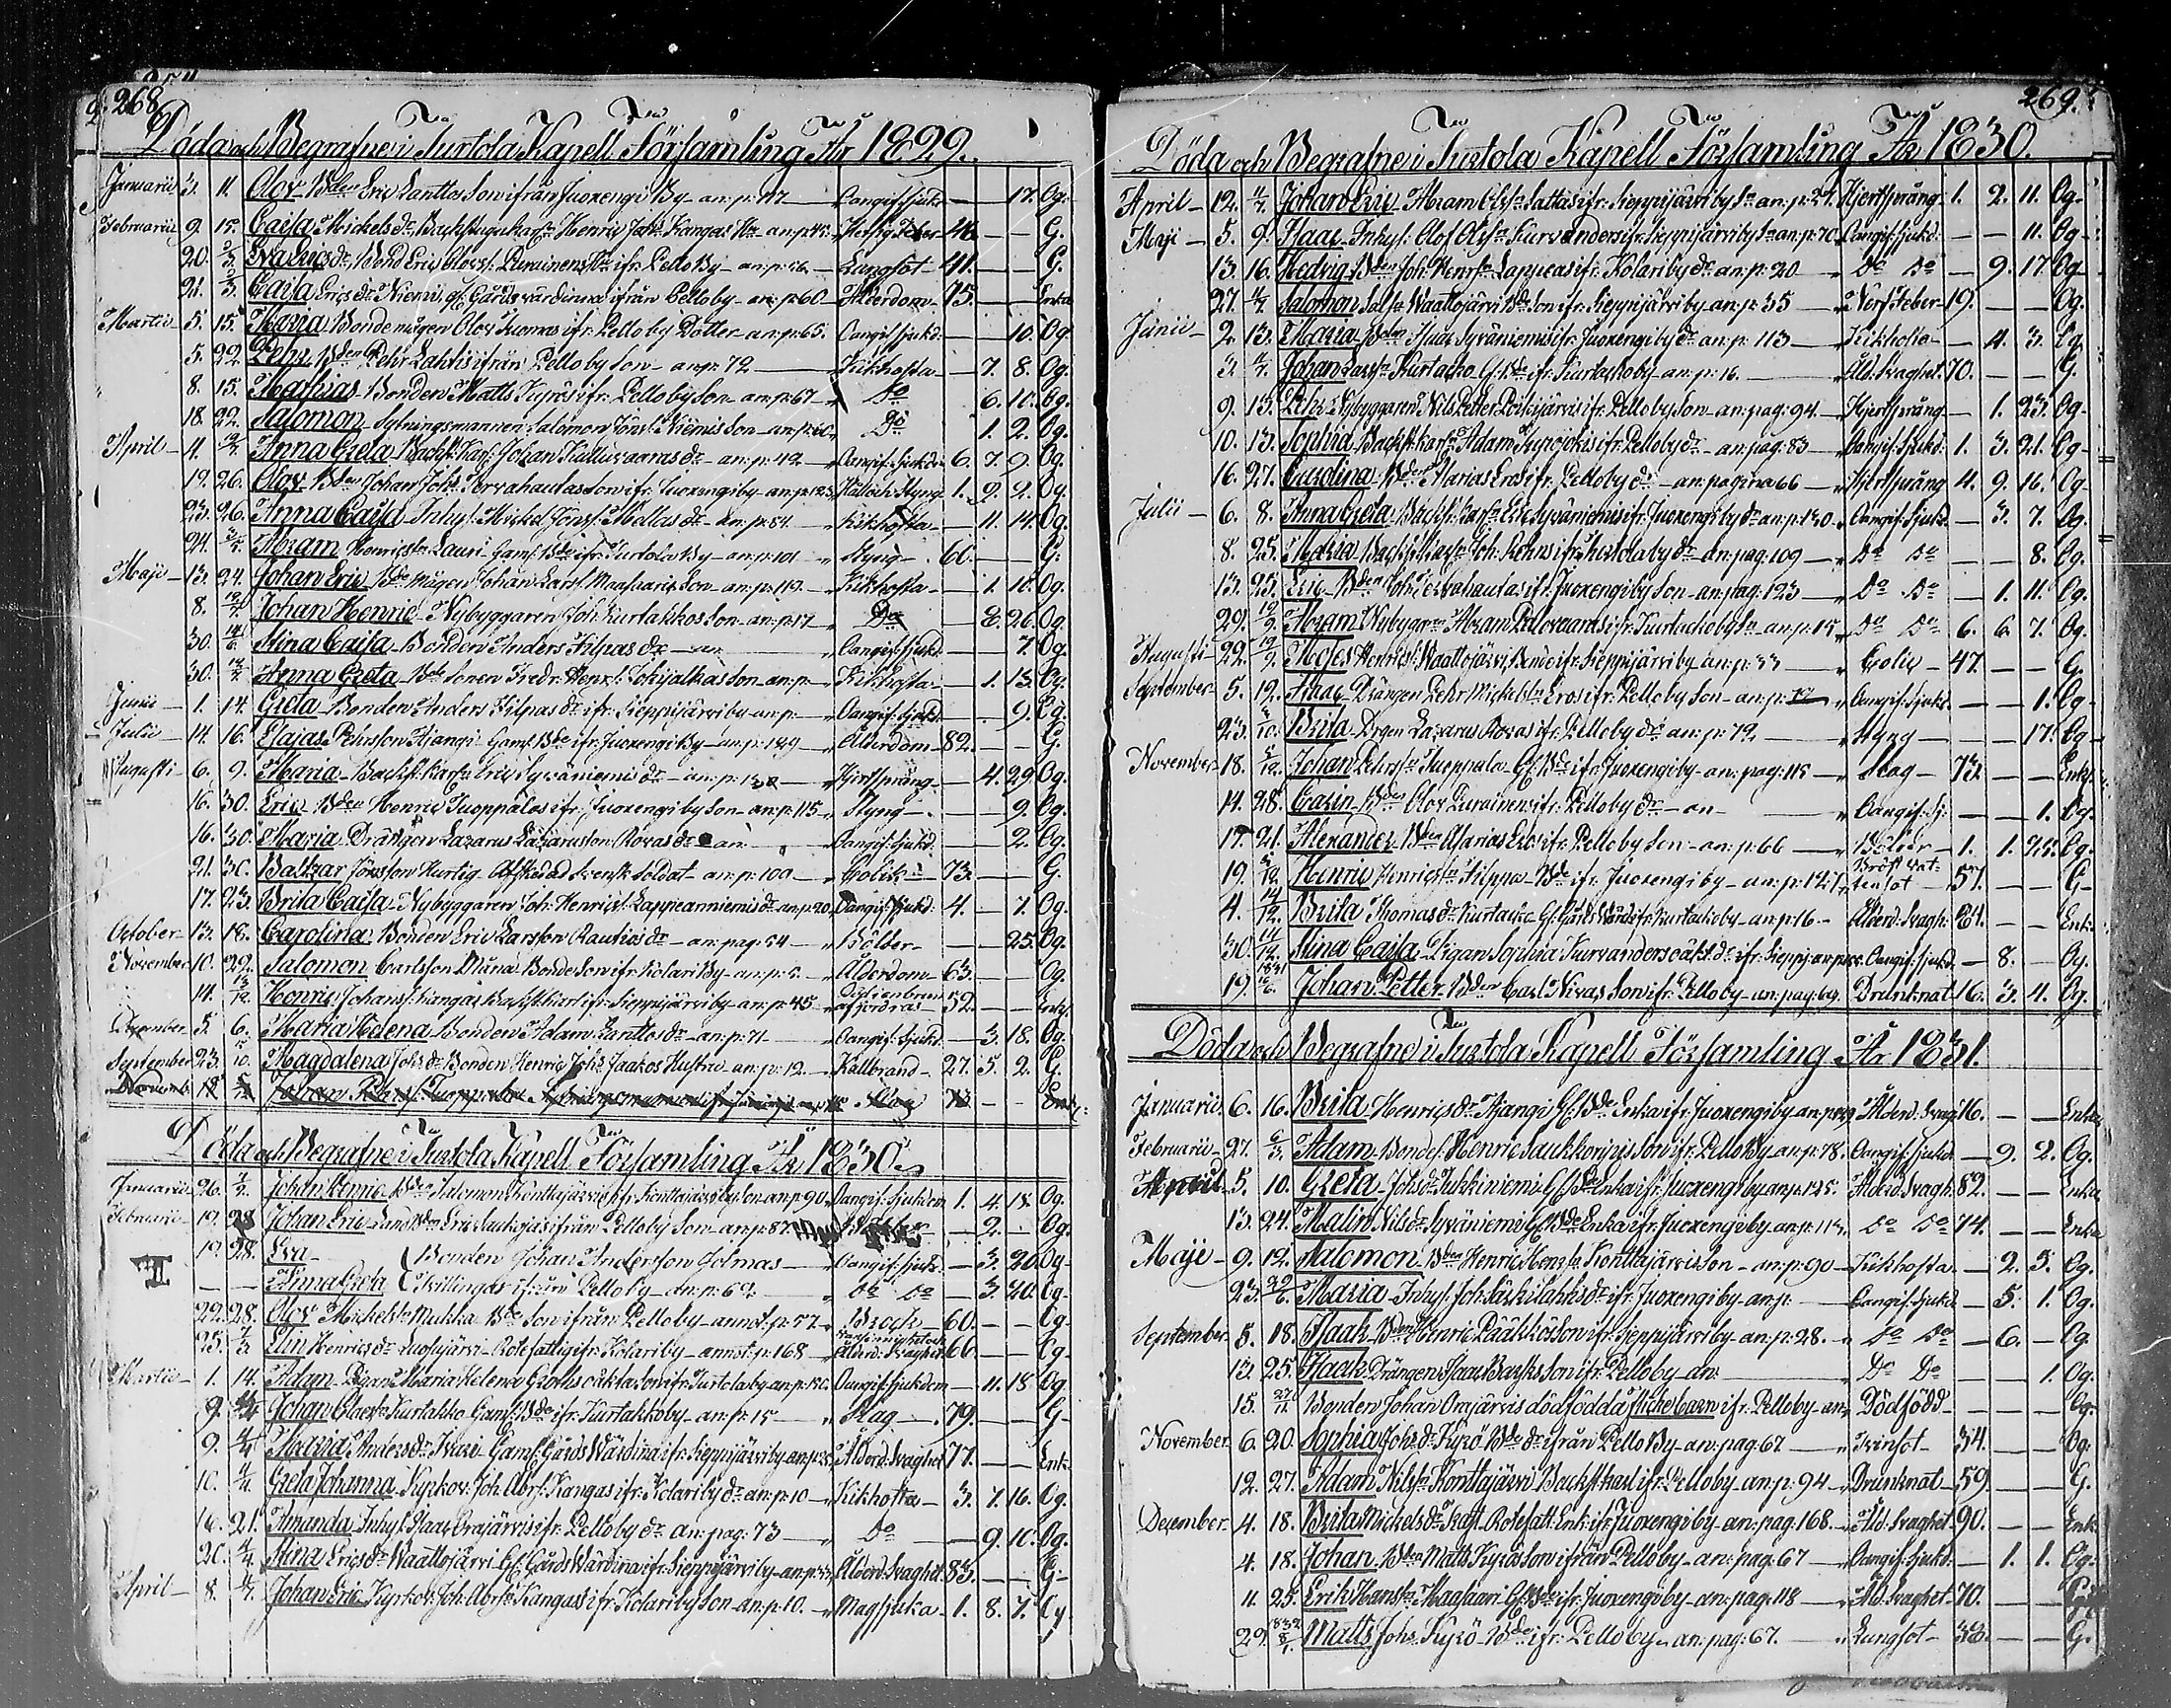 268.
Döda och Begrafne i Turtola Kapell Församling År 1829.
Januarii 3. 11. Olov Bden Eric Lanttos Son ifrån Juoxengi By an: p: 117 Oangif. sjukd. — — 17. Og.
Februarii 9. 15. Caisa Mickels dr Henric Joh: Kangas Hu an: p: 45 Feber 46. — — G.
20. 2/3. Eva Erics dr Bond Eric Olofs: Purainens Hu ifr. Pello By an: p: 56 Lungsot 41. — — G.
21. 2/3. Caisa Erics dr Niemi, gl. Gårds värdinna ifrån Pelloby an: p: 60 Ålderdom 75. — — Enka
Martii 5. 15. Maria Bondemågen Olov Tuomas ifr. Pelloby Dotter an: p: 65. Oangif. sjukd. — — 10. Og.
5. 22. Pehr Bden Pehr Lahtis ifrån Pelloby Son an: p: 72 Kikhosta — 7. 8. Og.
8. 15. Mathias Bonden Matts Kyrös ifr. Pelloby Son an: p: 67 Do 6. 10. Og.
18. 22. Salomon Sytningsmannen Salomon Jöns: Niemis Son an: p: 60 Do 1. 2. Og.
April 4. Anna Greta Backst. Karl. Johan Kallivaaras dr an: p: 42 Oangif. sjukd. 6. 7. 9. Og.
19. 26. Olov Bden Johan Joh: Tervahautas Son ifr. Juoxengiby an: p: 123 Håll och Styng 1. 9. 2. Og.
23. 26. Anna Caisa Inhys: Mickel Jöns: Mellas dr an: p: 84 Kikhosta — 11. 14. Og.
24. Abram Henricssn Lauri Gaml. Bde ifr. Turtola By an: p: 101 Styng 60. — — G.
Maji 13. 24. Johan Eric Bde mågen Johan Lars: Maasvaris Son an: p: 119. Kikhosta — 1. 10. Og.
8. Johan Henric Nybyggaren Joh: Kurtakkos Son an: p: 17 Do — 8. 26. Og.
30. 14/6. Stina Caisa Bonden Anders Filpas dr an Oangif. sjukd. 7. Og.
30. Anna Greta Bde Sonen Fredr. Henr: Lohijalkas Son an: p: Kikhosta — 1. 13. Og.
Junii 1. 14. Greta Bonden Anders Filpas dr ifr. Sieppijärviby an: p Oangif. sjukd. 9. Og.
Julii 14. 16. Esajas Pehrsson Stjangi Gaml. Bde ifr. Juoxengi By an: p: 129 Ålderdom 82. — — G.
Augusti 6. 9. Maria Backst. karln Eric Syväniemis dr an: p: 130 Hjertsprång — 4. 29. Og.
16. 30. Eric Bden Henric Tuoppalas ifr. Juoxengiby Son an: p: 115 Styng — 9. Og.
16. 30. Maria Drängen Lazarus Lazarusson Rovas dr an: Oangif. sjukd. — 2. Og.
21. 30. Baltzar Jönsson Hurtig Afskedad Svensk Soldat an: p: 100 Colik 73. — — G.
17. 23. Brita Caisa Nybyggaren Joh: Henricss: Lappeanniemis dr an: p: 20. Oangif. sjukd. 4. — 7. Og.
October 13. 18. Carolina Bonden Eric Larsson Rautios dr an: pag: 54 Bölder — — 25. Og.
November 10. 22. Salomon Carlsson Muna Bonde Son ifr. Kolari By an: p: 5. Ålderdom 63. — — Og.
14. Henric Johans: Kangas Backstkarl ifr. Sieppijärviby an: p: 45 52. — — Enkl.
December 5. 6. Maria Helena Bonden Adam Lanttos dr an: p: 71 Oangif. Sjukd. — 3. 18. Og.
September 23. Magdalena Johs dr Bonden Henric Johs Jaakos Hustru an: p: 12. Kallbrand 27. 5. 2. G.
Novemb. 18. Johan Pehrss: Tuoppala 73. — — Enkl.
Döda och Begrafne i Turtola Kapell Församling År 1830.
Januarii 26. Johan Henric Bden Salomon Konttajärvis ifr. Konttajärviby Son an: p: 90 Oangif. Sjukdom 1. 4. 18. Og.
Februarii 19. 28. Johan Eric Landtbdn Eric Saukojas ifrån Pelloby Son an: p: 87 — 2. — Og.
19. 28. Eva { Bonden Johan Andersson Jolmas Oangif. sjukd. — 3. 20. Og.
— — Anna Greta { Tvillingar ifrån Pelloby an: p: 69 Do Do — 3. 20. Og.
22. 28. Olov Mickelssn Mukka Bde Son ifrån Pelloby annot. p: 77 Bråck 60. — — Og.
25. Elin Henrics dr Luosujärvi Rotefattig ifr. Kolariby annot. p: 168 Ålderd. Svaghet 66. — — Og.
Martii 1. 14. Adam Pigan Maria Helena Groths oäkta Son ifr. Turtolaby an: p: 150. Oangif. Sjukdom — 11. 18. Og.
9. Johan Olaessn Kurtakko Gaml: Bde ifr. Kurtakkoby an: p: 15 Slag 79. — — G.
9. Maria Anders dr Gaml. Gårds Wärdinna ifr. Sieppijärviby an: p: Ålderd. Svaghet 77. — — Enk.
10. Greta Johanna Kyrkov. Joh. Abrs: Kangas ifr. Kolariby dr an: p: 10 Kikhosta 3. 7. 16. Og.
16. 21. Amanda Inhys: Isaac Orajärvis ifr. Pelloby dr an: pag: 73 Do — 9. 10. Og.
20. Stina Erics dr Waattojärvi Gl. Gårds Wärdinna ifr. Sieppijärviby an: p: 33 Ålderd. Svaghet. 83. — — G.
April 8. Johan Eric Kyrkov: Joh: Abrssn Kangas ifr. Kolariby Son an: p: 10. Magsjuka 1. 8. 7. Og.
269.
Döda och Begrafne i Turtola Kapell Församling År 1830.
April 12. Johan Eric Abram Olssn Lattas ifr. Sieppijärviby Sn an: p: 24. Hjertsprång 1. 2. 11. Og.
Maji 5. 9. Isaac Inhys: Olof Olssn Kurvanders ifr. Sieppijärviby Sn an: p: 70. Oangif. sjukd. — — 11. Og.
13. 16. Hedvig Bden Joh: Henrssn Lappeas ifr. Kolariby dr an: p: 20 Do Do — 9. 17. Og.
27. Salomon Salssn Waattojärvi Bde Son ifr. Sieppijärviby an: p: 35 Nerf Feber 19. — — Og.
Junii 2. 13. Maria Bden Isaac Syväniemis ifr. Juoxengiby dr an: p: 113 Kikhosta — 4. 3. Og.
3. Johan Larssn Kurtacko Gl. Bde ifr. Kurtackoby an: p: 16. Åld. Svaghet. 70. — — G.
9. 13. Pehr Nybyggaren Nils Petter Poikijärvis ifr. Pelloby Son an: pag: 94. Hjertsprång — 1. 23. Og.
10. 13. Sophia Backst. karln Adam ifr. Pelloby dr an: pag: 83 Oangif. Sjukd. 1. 3. 21. Og.
16. 27. Carolina Bden Eros ifr. Pelloby dr an: pagina 66 Hjertsprång 4. 9. 16. Og.
Julii 6. 8. Anna Greta Backst. Karln Eric Syväniemis ifr. Juoxengiby dr an: p: 130. Oangif. sjukd. — 3. 7. Og.
8. 25. Maria Backst. Karln Joh: Rehns ifr. Turtolaby dr an: pag. 109 Do Do — — 8. Og.
13. 25. Eric Bden Joh: Tervahautas ifr. Juoxengiby Son an: pag: 123 Do Do — 1. 11. Og.
29. Abram Nybygrn Abram Palovaaras ifr. Kurtackoby Sn an: p: 15 Do Do 6. 6. 7. Og.
Augusti 22. Moses Henricss: Waattojärvi, Bende ifr. Sieppijärviby an: p: 33 Colic 47. — — G.
September 5. 12. Isaac Drängen Pehr Mickelssn Eros ifr. Pelloby Son an: p: Oangif. Sjukd. — — 1. Og.
23. Brita Drgen Lazarus Rovas ifr. Pelloby dr an: p: 72 Styng — — 17. Og.
November 18. Johan Pehrssn Tuoppala Gl. Bde ifr. Juoxengiby an: pag: 115 Slag 73. — — Enkl.
14. 28. Carin Bden Olov Purainens ifr. Pelloby dr an Oangif. Sj: — — 1. Og.
17. 21. Alexander Bden Eros ifr. Pelloby Son an: p: 66 Bölder 1. 1. 25. Og.
19. Henric Henricssn Filppa Bde ifr. Juoxengiby an: p: 127 Bröst Vattensot 57. — — G.
4. Brita Thomas dr Kurtacko Gl. Gårds Wärd: ifr. Kurtackoby an: p: 16. Ålderd. Svagh. 84. — — Enk.
30. Stina Caisa Pigan Sophia Kurvanders oäkt. dr ifr. Siepp: an: p: Oangif. sjukd. — 8. — Og.
19. 1831 Johan Petter Bden Carl Nivas Son ifr. Pelloby an: pag: 64. Drunknat 16. 3. 11. Og.
Döda och Begrafne i Turtola Kapell Församling År 1831.
Januarii 6. 16. Brita Henrics dr Stjangi Gl. Bde Enka ifr. Juoxengiby an: p: Ålderd. Svag. 76. — — Enka
Februarii 27. 6/3. Adam Bondes: Henric Saukkorivis Son ifr. Pello By an: p: 78. Oangif. Sjukd. — 9. 2. Og.
April 5. 10. Greta Johs dr Gl. Bde Enka ifr. Juoxengiby an: p: 125. Ålderd. Svagh. 82. — — Enka
13. 24. Malin Nils dr Syväniemi Gl. Bde Enka ifr. Juoxengiby an: p: 113. Do Do 74. — — Enka
Maji 9. 12. Salomon Bden Henric Henrssn Konttajärvis Son an: p: 90 Kikhosta — 2. 3. Og.
23. Maria Inhys: Joh: Särkilahtis dr ifr. Juoxengiby an: p: Oangif. Sjukd. — 5. 1. Og.
September 5. 18. Isaak Bden Henric Pääkkös Son ifr. Sieppijärviby an: p: 28. Do Do — 6. — Og.
13. 25. Isaak Drängen Isaac Barsks Son ifr. Pelloby an: Do Do — — 1. Og.
15. Bonden Johan Orajärvis dödfödda flickebarn ifr. Pelloby an: Dödfödd — — — Og.
November 6. 20. Sophia Johs dr Kyrö Bde dr ifrån Pello By an: pag: 67 Tvinsot 34. — — Og.
12. 27. Adam Nilssn Konttajärvi Backstkarl ifr. Pelloby an: p: 94 Drunknat 59 — — G.
December 4. 18. Brita Mickels dr Skaft Rotefatt. Enk. ifr. Juoxengiby an: pag: 168. Åld. Svaghet 90. — — Enk.
4. 18. Johan Bden Matts Kyrös Son ifrån Pelloby an: pag: 67 Oangif. sjukd. — 1. 1. Og.
11. 25. Erik Hanssn Maasuari Gl. Bde ifr. Juoxengiby an: pag: 118 Åld. Svaghet. 70. — — G.
29. 1832 8/1. Matts Johs. Kyrö Bde ifr. Pelloby an: pag: 67. Lungsot 38. — — G.